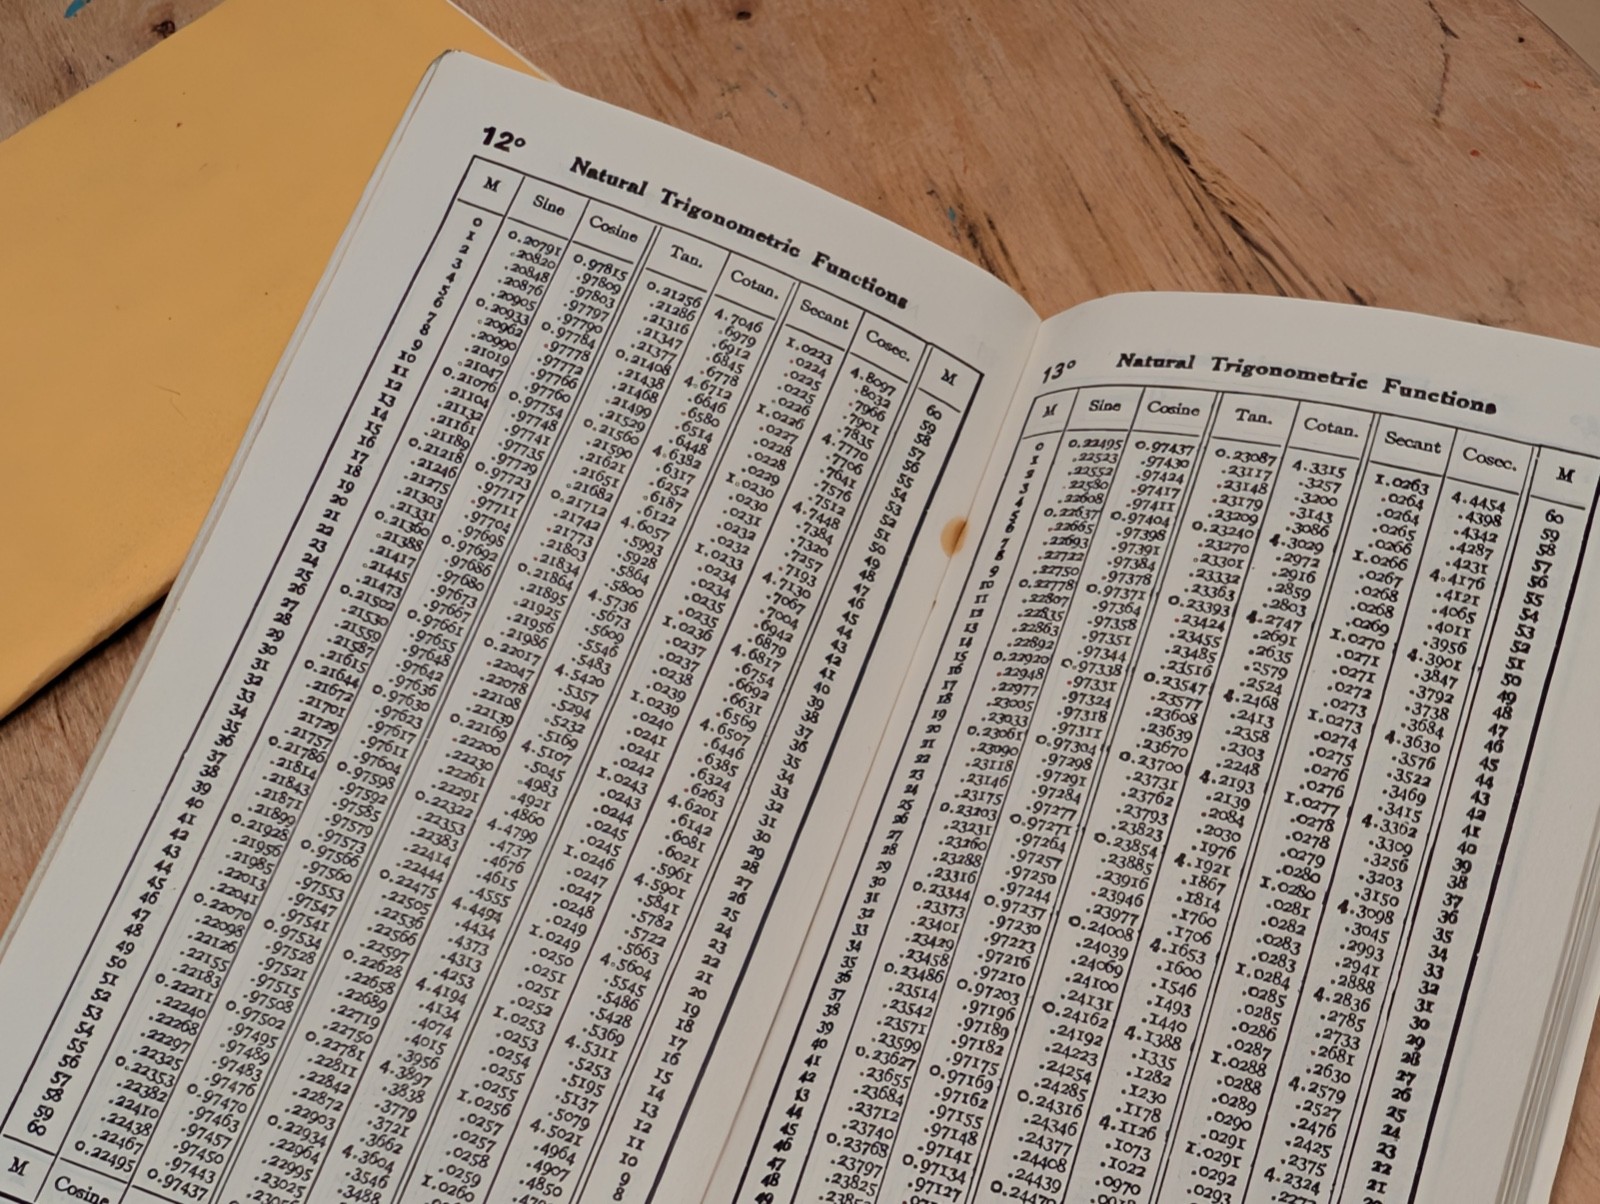 12°
Natural Trigonometric Functions
M Sine Cosine Tan. Cotan. Secant Cosec. M
0 0.20791 0.97815 0.21256 4.7046 1.0223 4.8097 60
1 .20820 .97809 .21286 .6979 .0224 .8032 59
2 .20848 .97803 .21316 .6912 .0225 .7966 58
3 .20876 .97797 .21347 .6845 .0225 .7901 57
4 .20905 .97790 .21377 .6778 .0226 .7835 56
5 0.20933 0.97784 0.21408 4.6712 1.0226 4.7770 55
6 .20962 .97778 .21438 .6646 .0227 .7706 54
7 .20990 .97772 .21468 .6580 .0228 .7641 53
8 .21019 .97766 .21499 .6514 .0228 .7576 52
9 .21047 .97760 .21529 .6448 .0229 .7512 51
10 0.21076 0.97754 0.21560 4.6382 1.0230 4.7448 50
11 .21104 .97748 .21590 .6317 .0230 .7384 49
12 .21132 .97741 .21621 .6252 .0231 .7320 48
13 .21161 .97735 .21651 .6187 .0232 .7257 47
14 .21189 .97729 .21682 .6122 .0232 .7193 46
15 0.21218 0.97723 0.21712 4.6057 1.0233 4.7130 45
16 .21246 .97717 .21742 .5993 .0234 .7067 44
17 .21275 .97711 .21773 .5928 .0234 .7004 43
18 .21303 .97704 .21803 .5864 .0235 .6942 42
19 .21331 .97698 .21834 .5800 .0235 .6879 41
20 0.21360 0.97692 0.21864 4.5736 1.0236 4.6817 40
21 .21388 .97686 .21895 .5673 .0237 .6754 39
22 .21417 .97680 .21925 .5609 .0237 .6692 38
23 .21445 .97673 .21956 .5546 .0238 .6631 37
24 .21473 .97667 .21986 .5483 .0239 .6569 36
25 0.21502 0.97661 0.22017 4.5420 1.0239 4.6507 35
26 .21530 .97655 .22047 .5357 .0240 .6446 34
27 .21559 .97648 .22078 .5294 .0241 .6385 33
28 .21587 .97642 .22108 .5232 .0241 .6324 32
29 .21615 .97636 .22139 .5169 .0242 .6263 31
30 0.21644 0.97630 0.22169 4.5107 1.0243 4.6201 30
31 .21672 .97623 .22200 .5045 .0243 .6142 29
32 .21701 .97617 .22230 .4983 .0244 .6081 28
33 .21729 .97611 .22261 .4921 .0245 .6021 27
34 .21757 .97604 .22291 .4860 .0245 .5961 26
35 0.21786 0.97598 0.22322 4.4799 1.0246 4.5901 25
36 .21814 .97592 .22353 .4737 .0247 .5841 24
37 .21843 .97585 .22383 .4676 .0247 .5782 23
38 .21871 .97579 .22414 .4615 .0248 .5722 22
39 .21899 .97573 .22444 .4555 .0249 .5663 21
40 0.21928 0.97566 0.22475 4.4494 1.0249 4.5604 20
41 .21956 .97560 .22505 .4434 .0250 .5545 19
42 .21985 .97553 .22536 .4373 .0251 .5486 18
43 .22013 .97547 .22566 .4313 .0251 .5428 17
44 .22041 .97541 .22597 .4253 .0252 .5369 16
45 0.22070 0.97534 0.22628 4.4194 1.0253 4.5311 15
46 .22098 .97528 .22658 .4134 .0253 .5253 14
47 .22126 .97521 .22689 .4074 .0254 .5195 13
48 .22155 .97515 .22719 .4015 .0255 .5137 12
49 .22183 .97508 .22750 .3956 .0255 .5079 11
50 0.22211 0.97502 0.22781 4.3897 1.0256 4.5021 10
51 .22240 .97495 .22811 .3838 .0257 .4964 9
52 .22268 .97489 .22842 .3779 .0257 .4907 8
53 .22297 .97483 .22872 .3721 .0258 .4850
54 .22325 .97476 .22903 .3662 .0259
55 0.22353 0.97470 0.22934 4.3604 1.0260
56 .22382 .97463 .22964 .3546
57 .22410 .97457 .22995 .3488
58 .22438 .97450 .23025
59 .22467 .97443
60 0.22495 0.97437
M Cosine
13°
Natural Trigonometric Functions
M Sine Cosine Tan. Cotan. Secant Cosec. M
0 0.22495 0.97437 0.23087 4.3315 1.0263 4.4454 60
1 .22523 .97430 .23117 .3257 .0264 .4398 59
2 .22552 .97424 .23148 .3200 .0264 .4342 58
3 .22580 .97417 .23179 .3143 .0265 .4287 57
4 .22608 .97411 .23209 .3086 .0266 .4231 56
5 0.22637 0.97404 0.23240 4.3029 1.0266 4.4176 55
6 .22665 .97398 .23270 .2972 .0267 .4121 54
7 .22693 .97391 .23301 .2916 .0268 .4065 53
8 .22722 .97384 .23332 .2859 .0268 .4011 52
9 .22750 .97378 .23363 .2803 .0269 .3956 51
10 0.22778 0.97371 0.23393 4.2747 1.0270 4.3901 50
11 .22807 .97364 .23424 .2691 .0271 .3847 49
12 .22835 .97358 .23455 .2635 .0271 .3792 48
13 .22863 .97351 .23485 .2579 .0272 .3738 47
14 .22892 .97344 .23516 .2524 .0273 .3684 46
15 0.22920 0.97338 0.23547 4.2468 1.0273 4.3630 45
16 .22948 .97331 .23577 .2413 .0274 .3576 44
17 .22977 .97324 .23608 .2358 .0275 .3522 43
18 .23005 .97318 .23639 .2303 .0276 .3469 42
19 .23033 .97311 .23670 .2248 .0276 .3415 41
20 0.23061 0.97304 0.23700 4.2193 1.0277 4.3362 40
21 .23090 .97298 .23731 .2139 .0278 .3309 39
22 .23118 .97291 .23762 .2084 .0278 .3256 38
23 .23146 .97284 .23793 .2030 .0279 .3203 37
24 .23175 .97277 .23823 .1976 .0280 .3150 36
25 0.23203 0.97271 0.23854 4.1921 1.0280 4.3098 35
26 .23231 .97264 .23885 .1867 .0281 .3045 34
27 .23260 .97257 .23916 .1814 .0282 .2993 33
28 .23288 .97250 .23946 .1760 .0283 .2941 32
29 .23316 .97244 .23977 .1706 .0283 .2888 31
30 0.23344 0.97237 0.24008 4.1653 1.0284 4.2836 30
31 .23373 .97230 .24039 .1600 .0285 .2785 29
32 .23401 .97223 .24069 .1546 .0285 .2733 28
33 .23429 .97216 .24100 .1493 .0286 .2681 27
34 .23458 .97210 .24131 .1440 .0287 .2630 26
35 0.23486 0.97203 0.24162 4.1388 1.0288 4.2579 25
36 .23514 .97196 .24192 .1335 .0288 .2527 24
37 .23542 .97189 .24223 .1282 .0289 .2476 23
38 .23571 .97182 .24254 .1230 .0290 .2425 22
39 .23599 .97175 .24285 .1178 .0291 .2375 21
40 0.23627 0.97169 0.24316 4.1126 1.0291 4.2324
41 .23655 .97162 .24346 .1073 .0292
42 .23684 .97155 .24377 .1022 .0293
13 .23712 .97148 .24408 .0970
44 .23740 .97141 .24439
45 0.23768 0.97134
46 .23797 .97127
47 .23825
48
49